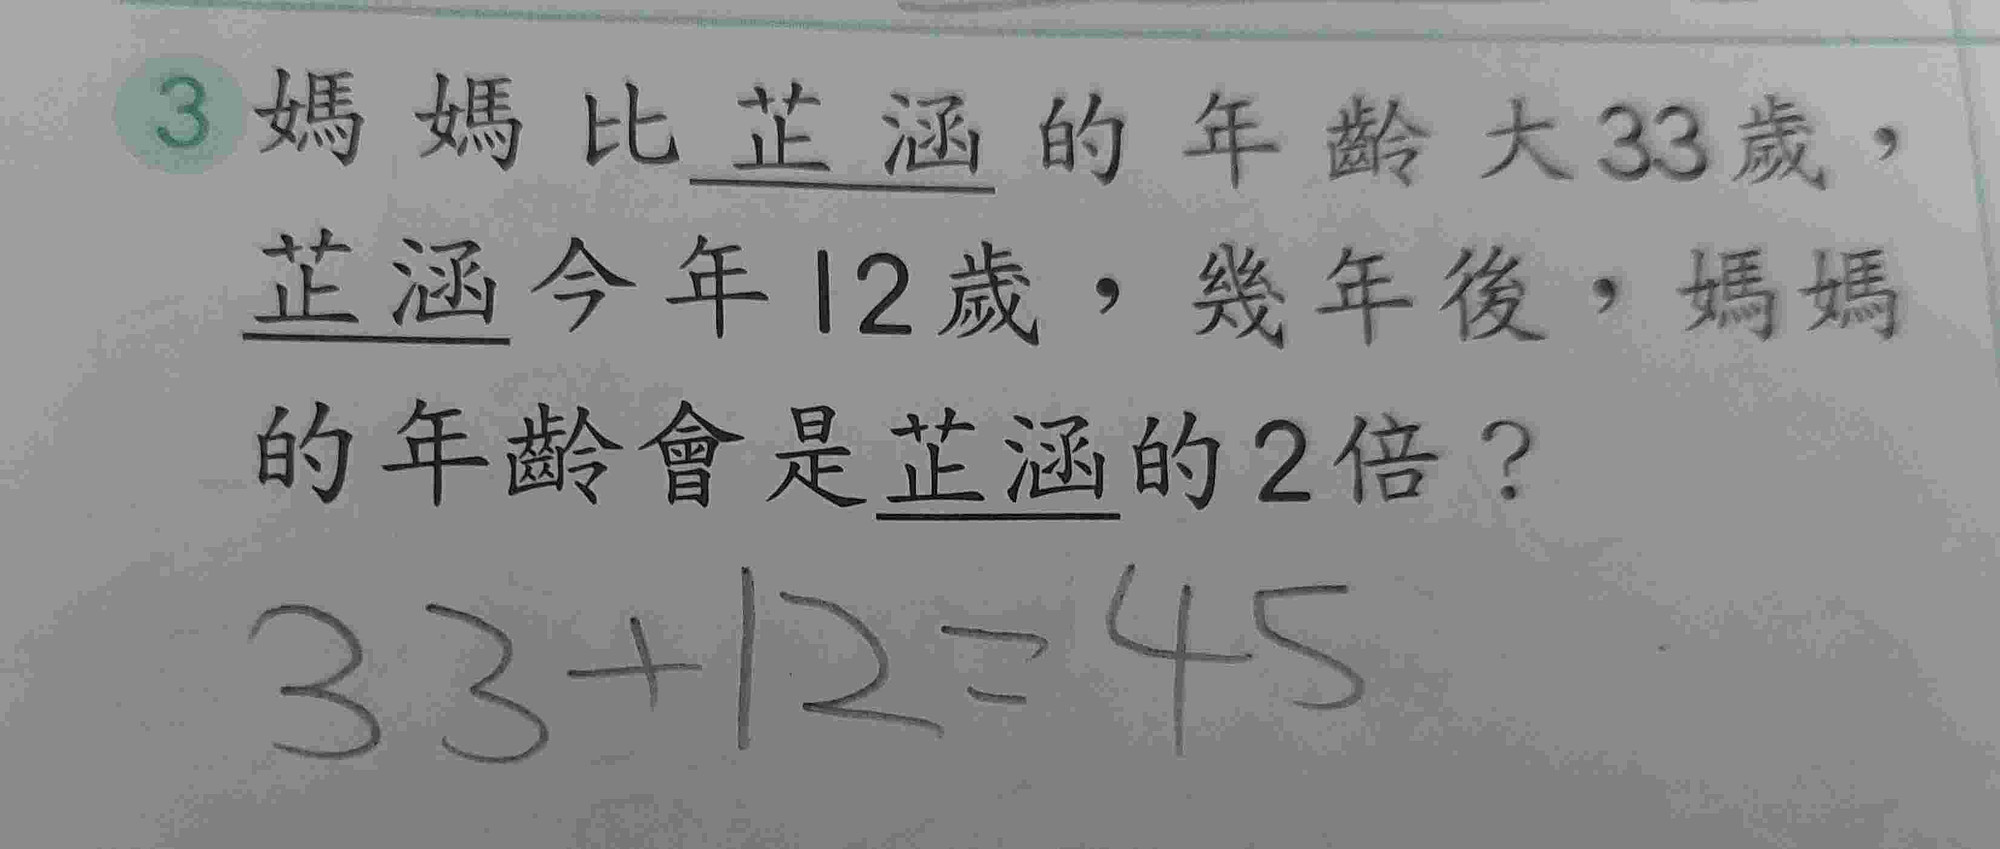 3 媽媽比芷涵的年齡大33歲，
芷涵今年12歲，幾年後，媽媽
的年齡會是芷涵的2倍？
33+12=45